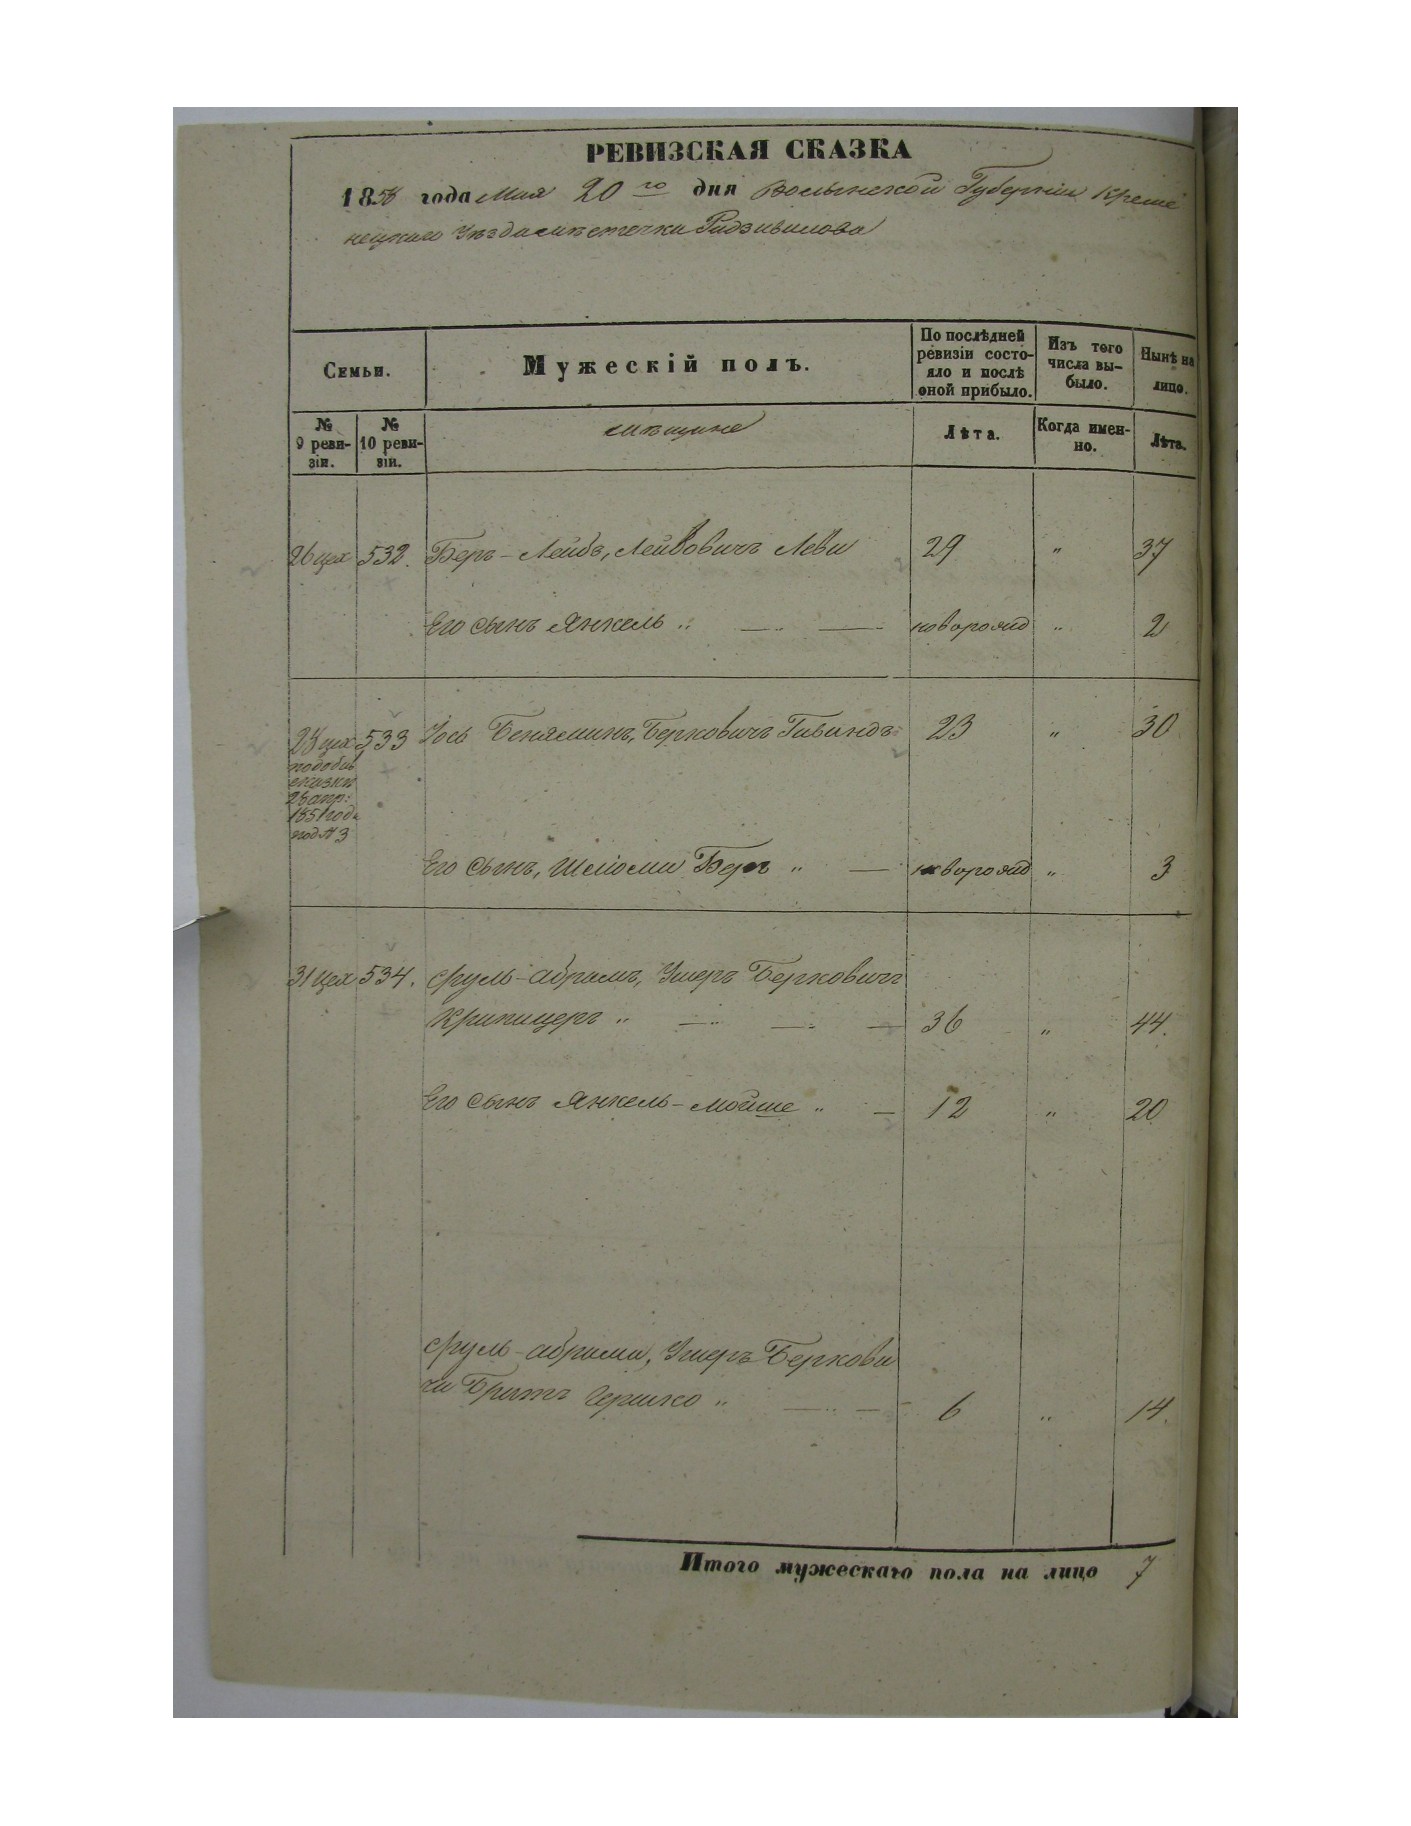 РЕВИЗСКАЯ СКАЗКА
1858 года Мая 20го дня Волынской Губернии Креме
нецкаго Уѣзда мѣстечка Радзивилова
Семьи.
Мужескій полъ.
По послѣдней ревизіи состо-
яло и послѣ оной прибыло.
Изъ того числа вы-
было.
Нынѣ на лицо.
№ 9 реви-
зіи.
№ 10 реви-
зіи.
мѣщане
Лѣта.
Когда имен-
но.
Лѣта.
26 цех 532. Беръ-Лейбъ, Лейбовичъ Леви 29 " 37
Его сынъ Янкель " новорожд " 2
28 цех 533 Іось Беняминъ, Берковичъ 23 " 30
сказки
28 апр:
1851 года
под № 3
Его сынъ, Шліоми Беръ " новорожд " 3
31 цех 534. Сруль-Абрамъ, Ушеръ Берковичъ
Крипицеръ " 36 " 44.
Его сынъ Янкель-Мойше " 12 " 20
Сруль-Абрама, Ушеръ Беркови
ча Братъ Гершко " 6 " 14.
Итого мужескаго пола на лицо 7